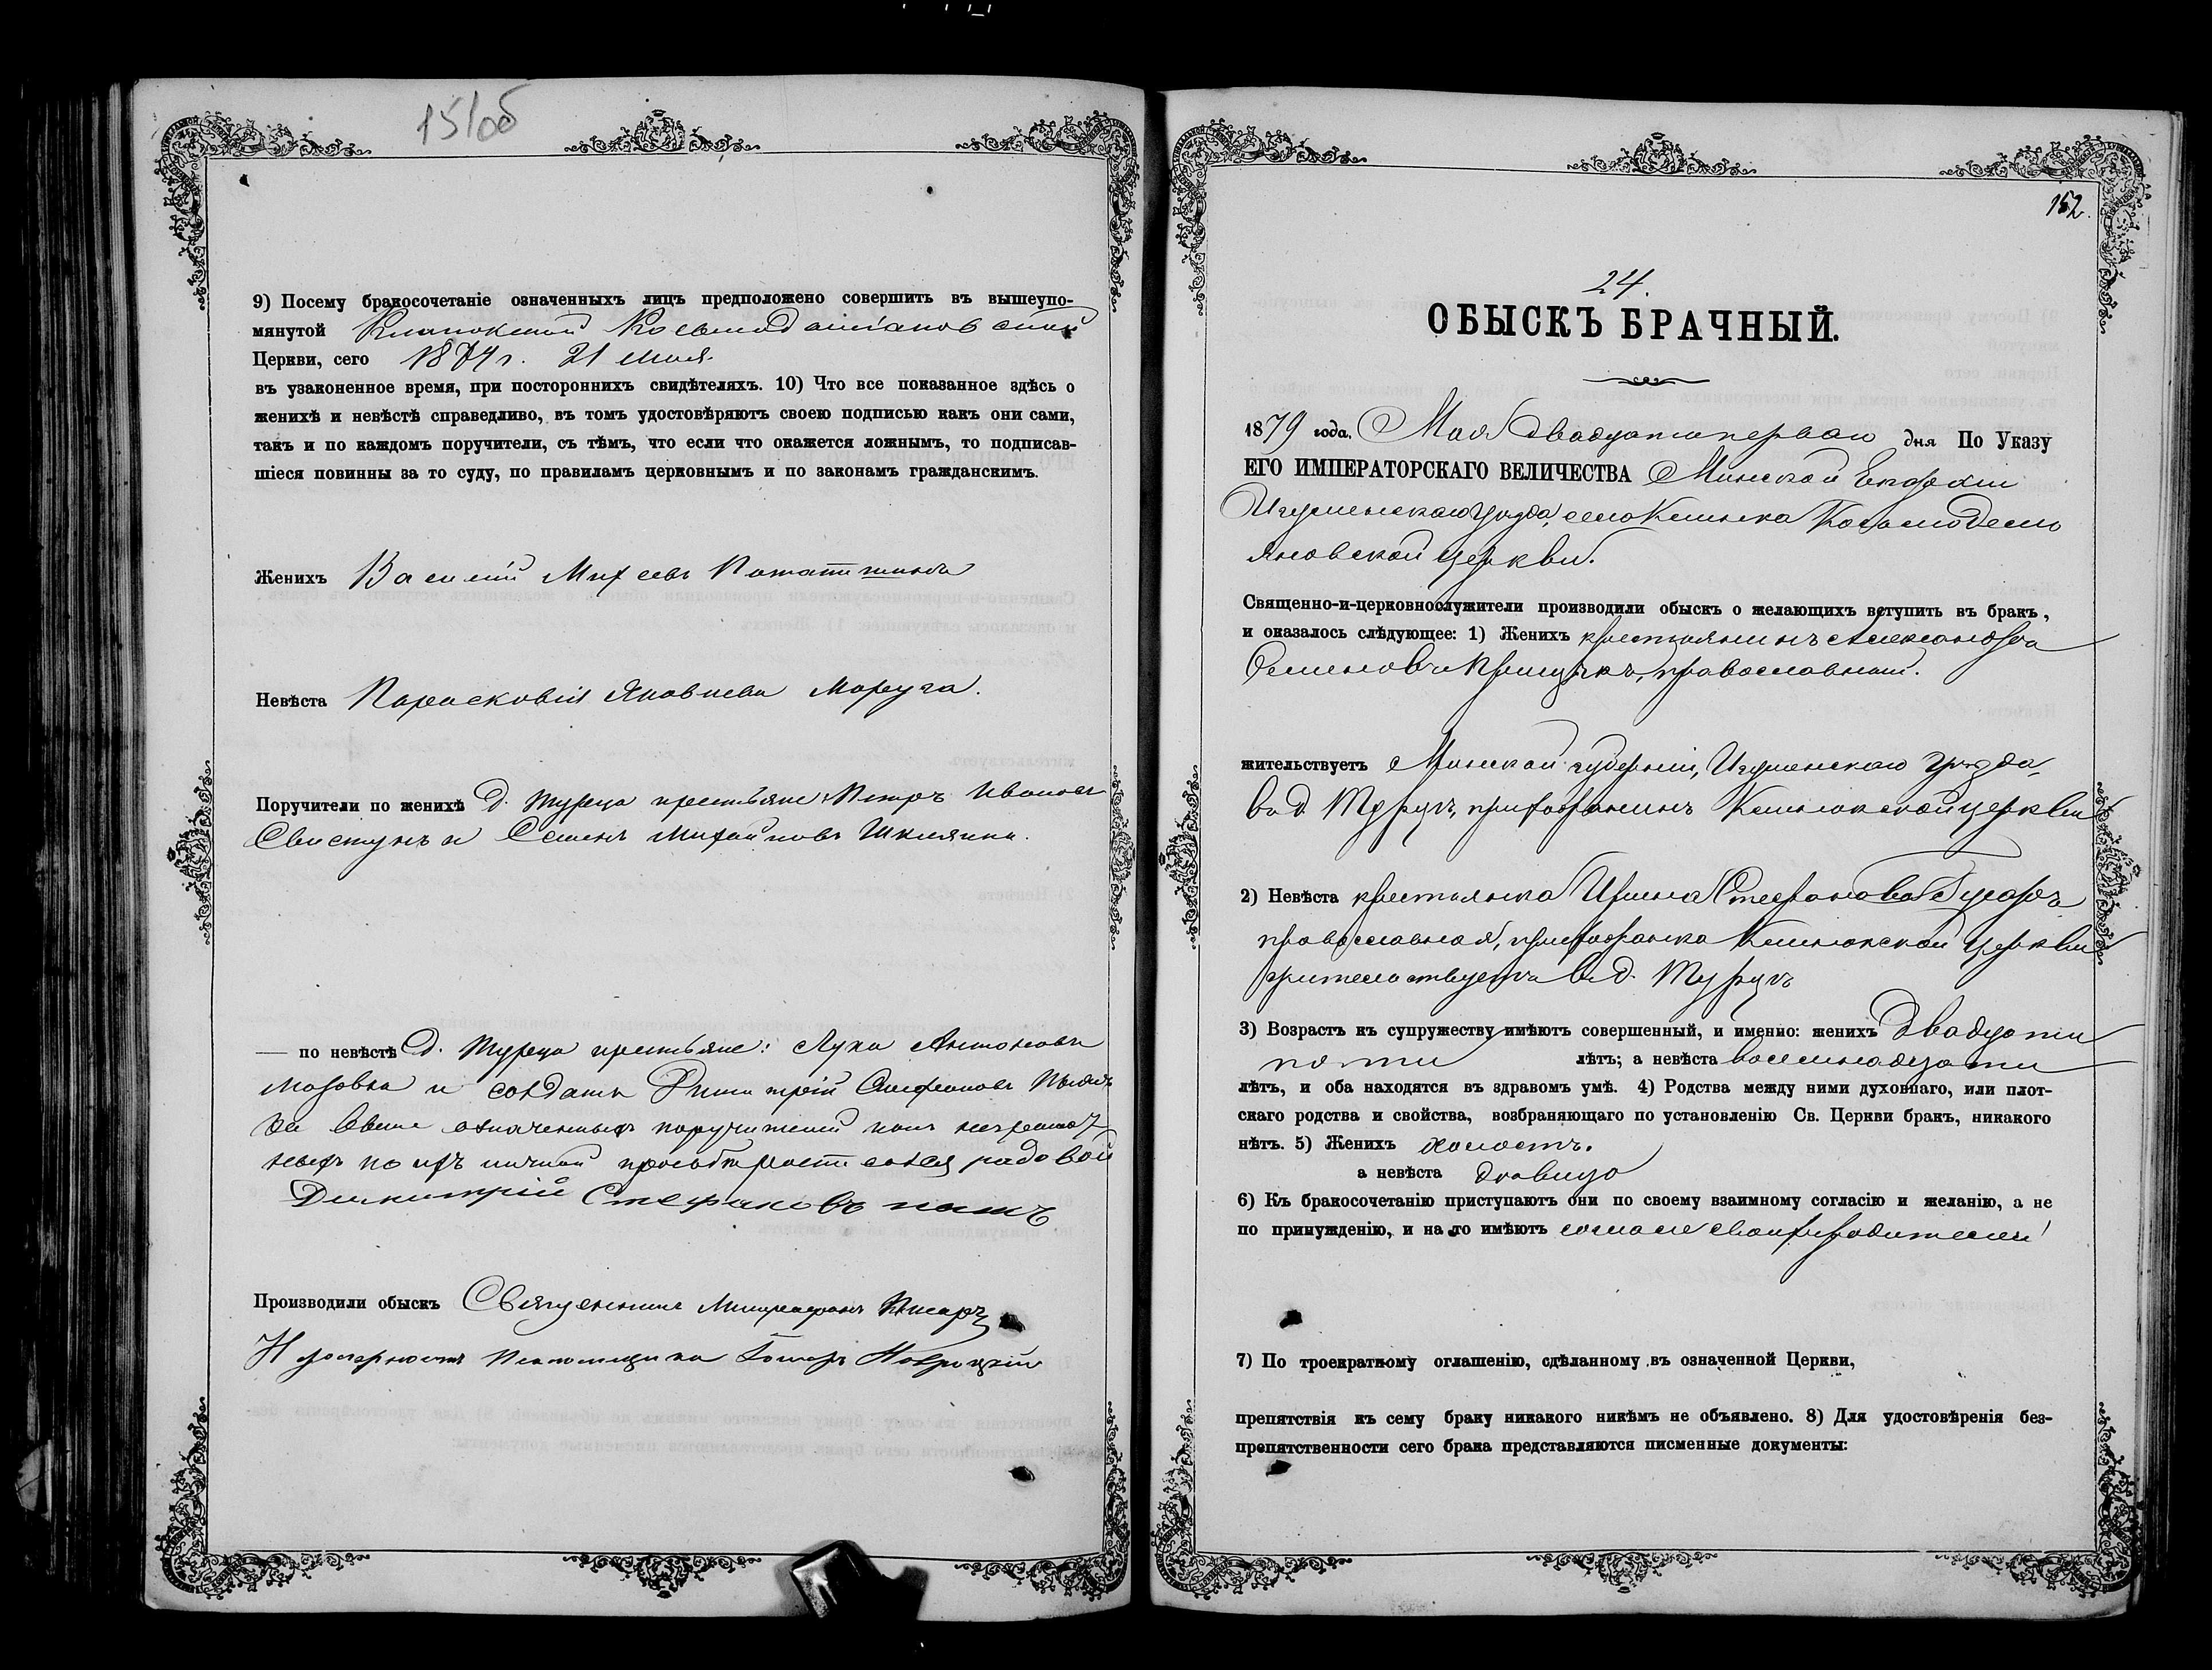 151об
9) Посему бракосочетаніе означенныхъ лицъ предположено совершить въ вышеупо-
мянутой Клинокской Космодаміановской
Церкви, сего 1879 г. 21 мая
въ узаконенное время, при постороннихъ свидѣтеляхъ. 10) Что все показанное здѣсь о
женихѣ и невѣстѣ справедливо, въ томъ удостовѣряютъ своею подписью какъ они сами,
такъ и по каждомъ поручители, съ тѣмъ, что если что окажется ложнымъ, то подписав-
шіеся повинны за то суду, по правиламъ церковнымъ и по законамъ гражданскимъ.
Женихъ Василій Михеевъ
Невѣста Парасковія Яковлева Маруга.
Поручители по женихѣ д. Турца крестьяне: Петръ Ивановъ
Свистунъ и Семенъ Михайловъ
— по невѣстѣ д. Турца крестьяне: Лука Антоновъ
и солдатъ Димитрій Стефановъ
За выше означенныхъ поручителей какъ неграмот-
ныхъ по ихъ личной прозьбѣ росписался рядовой
Димитрій Стефановъ
Производили обыскъ Священникъ Митрофанъ
И
152.
24.
ОБЫСКЪ БРАЧНЫЙ.
1879 года, Мая двадцать перваго дня По Указу
ЕГО ИМПЕРАТОРСКАГО ВЕЛИЧЕСТВА Минской Епархіи
Игуменскаго уѣзда, село Клинока Космодемь
яновской церкви.
Священно-и-церковнослужители производили обыскъ о желающихъ вступить въ бракъ,
и оказалось слѣдующее: 1) Женихъ крестьянинъ Александръ
Семеновъ православный.
жительствуетъ Минской губерніи, Игуменскаго уѣзда,
въ д. Турцѣ, прихожанинъ Клинокской церкви
2) Невѣста крестьянка Ирина Стефанова
православная, прихожанка Клинокской церкви
жительствуетъ въ д. Турцѣ
3) Возрастъ къ супружеству имѣютъ совершенный, и именно: женихъ двадцати
пяти лѣтъ; а невѣста восемнадцати
лѣтъ, и оба находятся въ здравомъ умѣ. 4) Родства между ними духовнаго, или плот-
скаго родства и свойства, возбраняющаго по установленію Св. Церкви бракъ, никакого
нѣтъ. 5) Женихъ холостъ.
а невѣста дѣвица
6) Къ бракосочетанію приступаютъ они по своему взаимному согласію и желанію, а не
по принужденію, и на то имѣютъ согласіе своихъ родителей
7) По троекратному оглашенію, сдѣланному въ означенной Церкви,
препятствія къ сему браку никакого никѣмъ не объявлено. 8) Для удостовѣренія без-
препятственности сего брака представляются писменные документы: